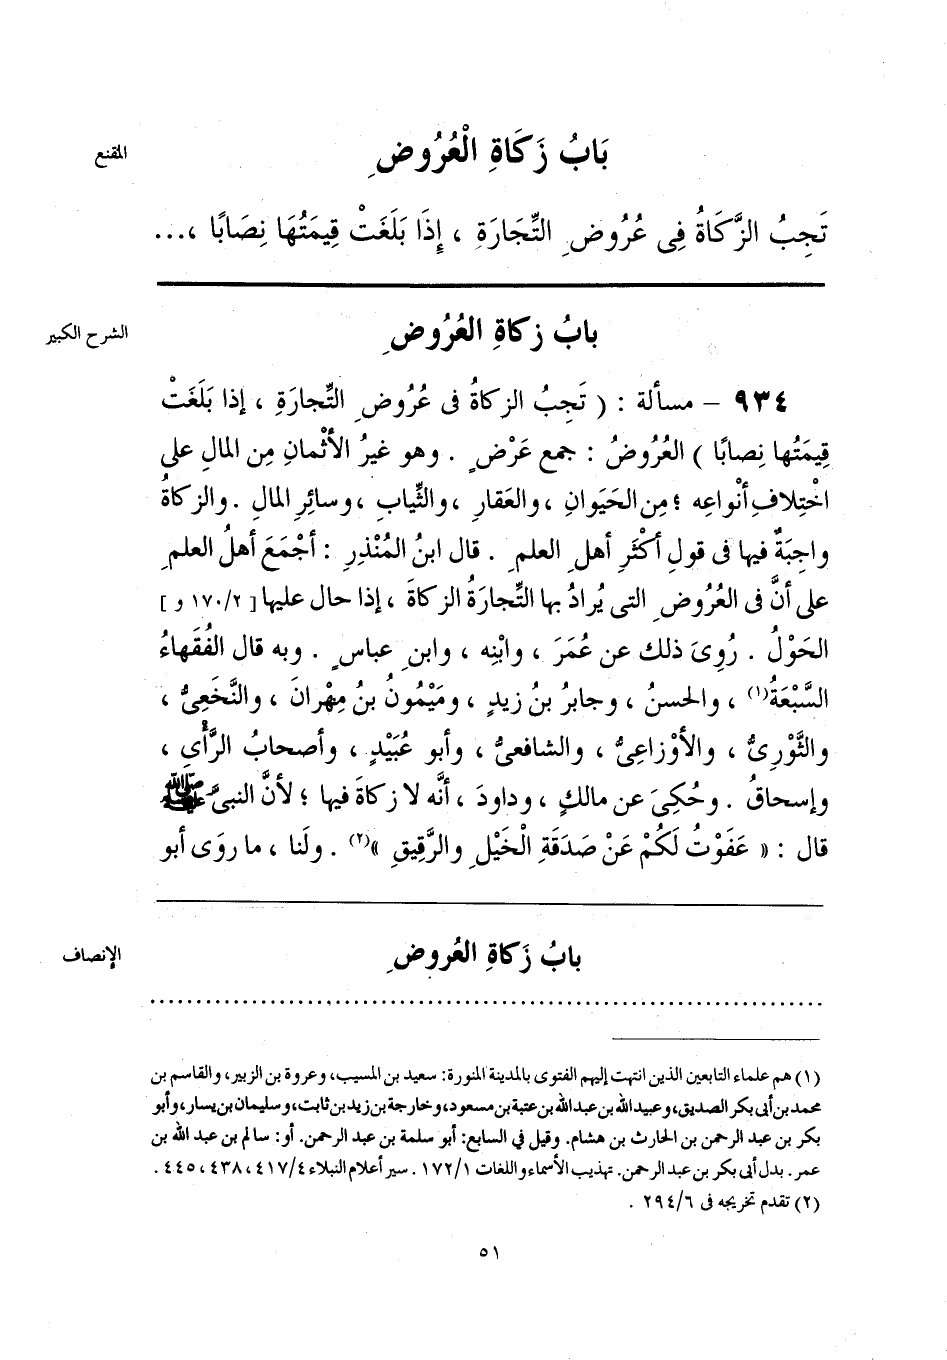 المقنع
بَابُ زَكَاةِ الْعُرُوضِ
تَجِبُ الزَّكَاةُ فِى عُرُوضِ التِّجَارَةِ ، إِذَا بَلَغَتْ قِيمَتُهَا نِصَابًا ،...
الشرح الكبير
بابُ زكاةِ العُرُوضِ
٩٣٤ – مسألة : ( تَجِبُ الزكاةُ فى عُرُوضِ التِّجارَةِ ، إذا بَلَغَتْ
قِيمَتُها نِصابًا ) العُرُوضُ : جمع عَرْضٍ . وهو غيرُ الأثْمانِ مِن المالِ على
اخْتِلافِ أنْواعِه ؛ مِن الحَيَوانِ ، والعَقارِ ، والثِّيابِ ، وسائِرِ المالِ . والزكاةُ
واجِبَةٌ فيها فى قولِ أكْثَرِ أهلِ العلمِ . قال ابنُ المُنْذِرِ : أجْمَعَ أهلُ العلمِ
على أنَّ فى العُرُوضِ التى يُرادُ بها التِّجارَةُ الزكاةَ ، إذا حال عليها [ ١٧٠/٢ و ]
الحَوْلُ . رُوِىَ ذلك عن عُمَرَ ، وابْنِه ، وابنِ عباسٍ . وبه قال الفُقَهاءُ
السَّبْعَةُ(١) ، والحسنُ ، وجابرُ بنُ زيدٍ ، ومَيْمُونُ بنُ مِهْرانَ ، والنَّخَعِىُّ ،
والثَّوْرِىُّ ، والأوْزاعِىُّ ، والشافعىُّ ، وأبو عُبَيْدٍ ، وأصحابُ الرَّأْىِ ،
وإسحاقُ . وحُكِىَ عن مالكٍ ، وداودَ ، أنَّه لا زكاةَ فيها ؛ لأنَّ النبىَّ ﷺ
قال : « عَفَوْتُ لَكُمْ عَنْ صَدَقَةِ الْخَيْلِ والرَّقِيقِ »(٢) . ولَنا ، ما روَى أبو
الإنصاف
بابُ زَكاةِ العُروضِ
(١) هم علماء التابعين الذين انتهت إليهم الفتوى بالمدينة المنورة: سعيد بن المسيب، وعروة بن الزبير، والقاسم بن
محمد بن أبى بكر الصديق، وعبيد الله بن عبد الله بن عتبة بن مسعود، وخارجة بن زيد بن ثابت، وسليمان بن يسار، وأبو
بكر بن عبد الرحمن بن الحارث بن هشام. وقيل في السابع: أبو سلمة بن عبد الرحمن. أو: سالم بن عبد الله بن
عمر. بدل أبى بكر بن عبد الرحمن. تهذيب الأسماء واللغات ١٧٢/١ . سير أعلام النبلاء ٤١٧/٤، ٤٣٨، ٤٤٥ .
(٢) تقدم تخريجه فى ٢٩٤/٦ .
٥١